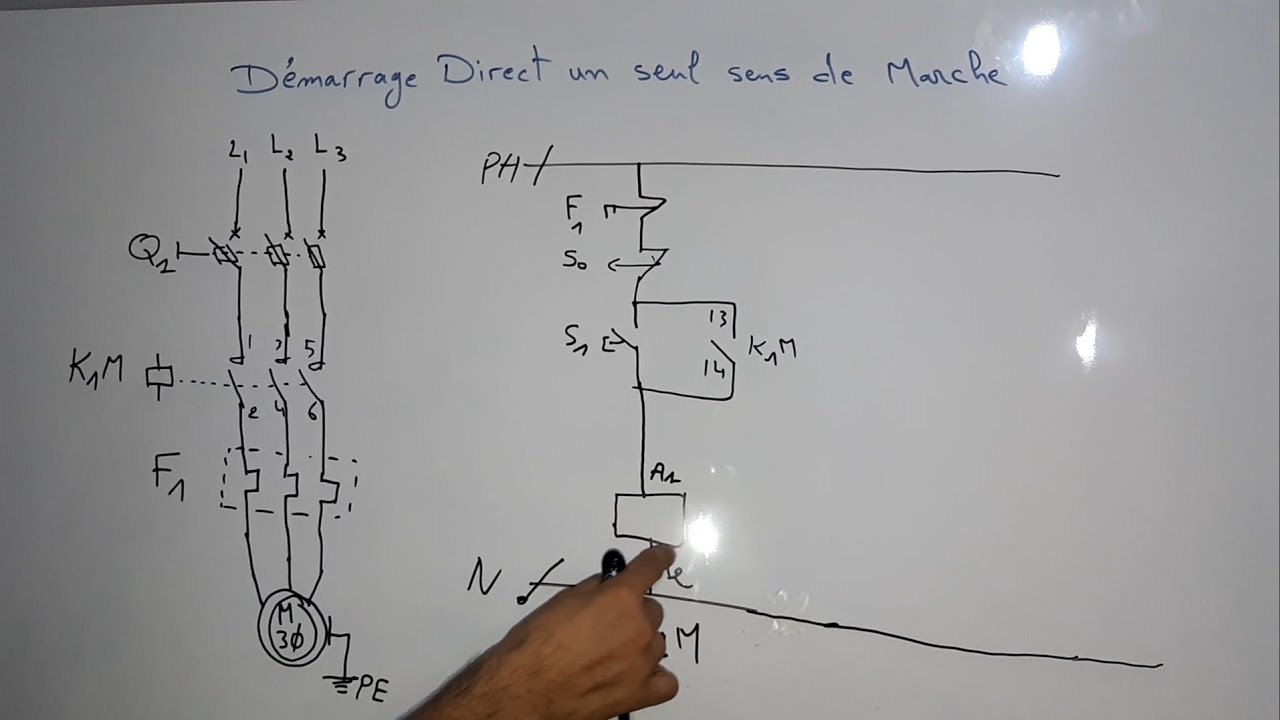 Démarrage Direct un seul sens de Marche
L1 L2 L3
Q1
K1M
1 3 5
2 4 6
F1
M
3Ø
PE
PH
F1
S0
S1
13
14
K1M
A1
N